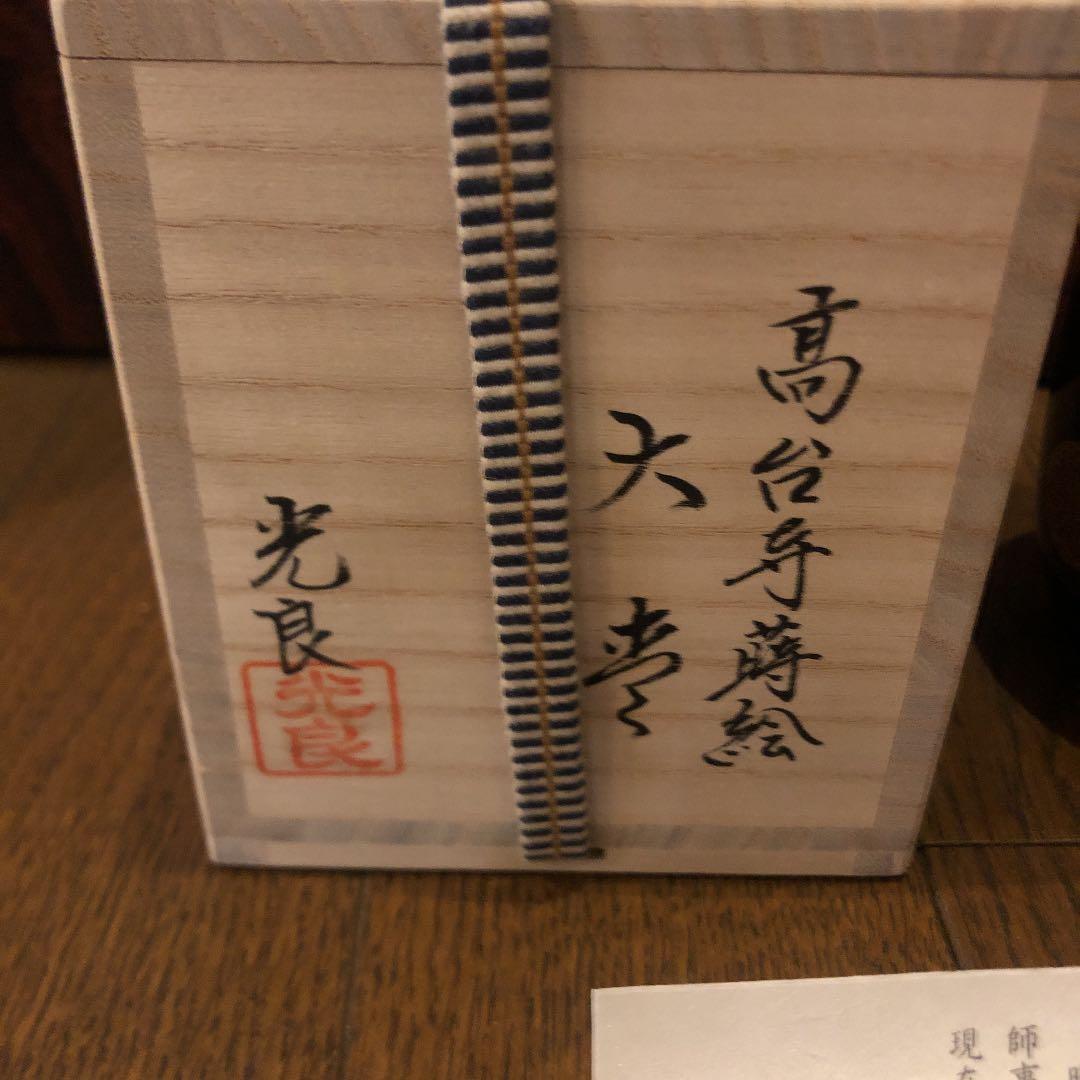 高台寺蒔絵
大棗
光良
光良
師事
現在